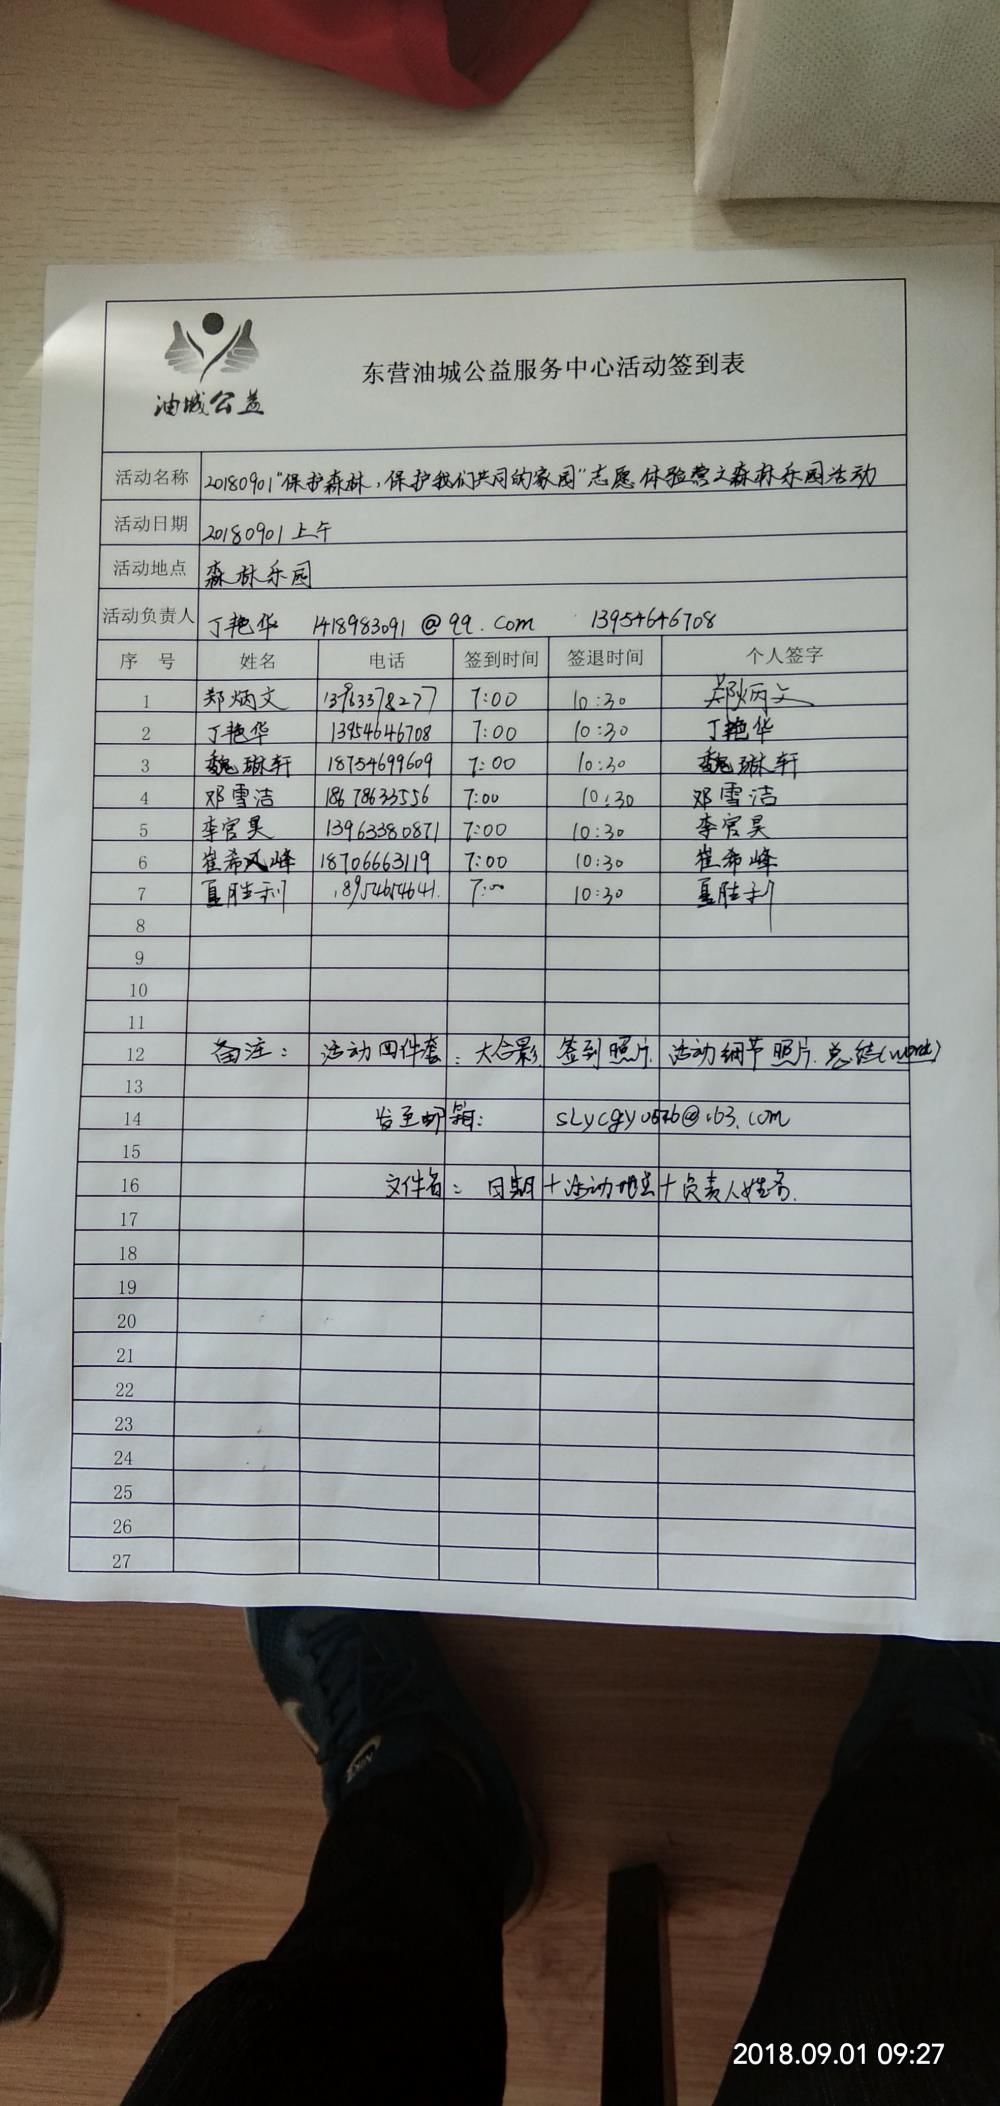 油城公益
东营油城公益服务中心活动签到表
活动名称 20180901"保护森林,保护我们共同的家园"志愿体验营之森林乐园活动
活动日期 20180901上午
活动地点 森林乐园
活动负责人 丁艳华 1418983091@qq.com 13954646708
序号 姓名 电话 签到时间 签退时间 个人签字
1 郑炳文 13963378277 7:00 10:30 郑炳文
2 丁艳华 13954646708 7:00 10:30 丁艳华
3 魏琳轩 18754699609 7:00 10:30 魏琳轩
4 邓雪洁 18678633556 7:00 10:30 邓雪洁
5 李官昊 13963380871 7:00 10:30 李官昊
6 崔希峰 18706663119 7:00 10:30 崔希峰
7 夏胜利 18954654641 7:00 10:30 夏胜利
8
9
10
11
12 备注: 活动四件套:大合影 签到照片 活动细节照片.总结(word)
13
14 发至邮箱: slycgy0546@163.com
15
16 文件名:日期+活动地点+负责人姓名.
17
18
19
20
21
22
23
24
25
26
27
2018.09.01 09:27